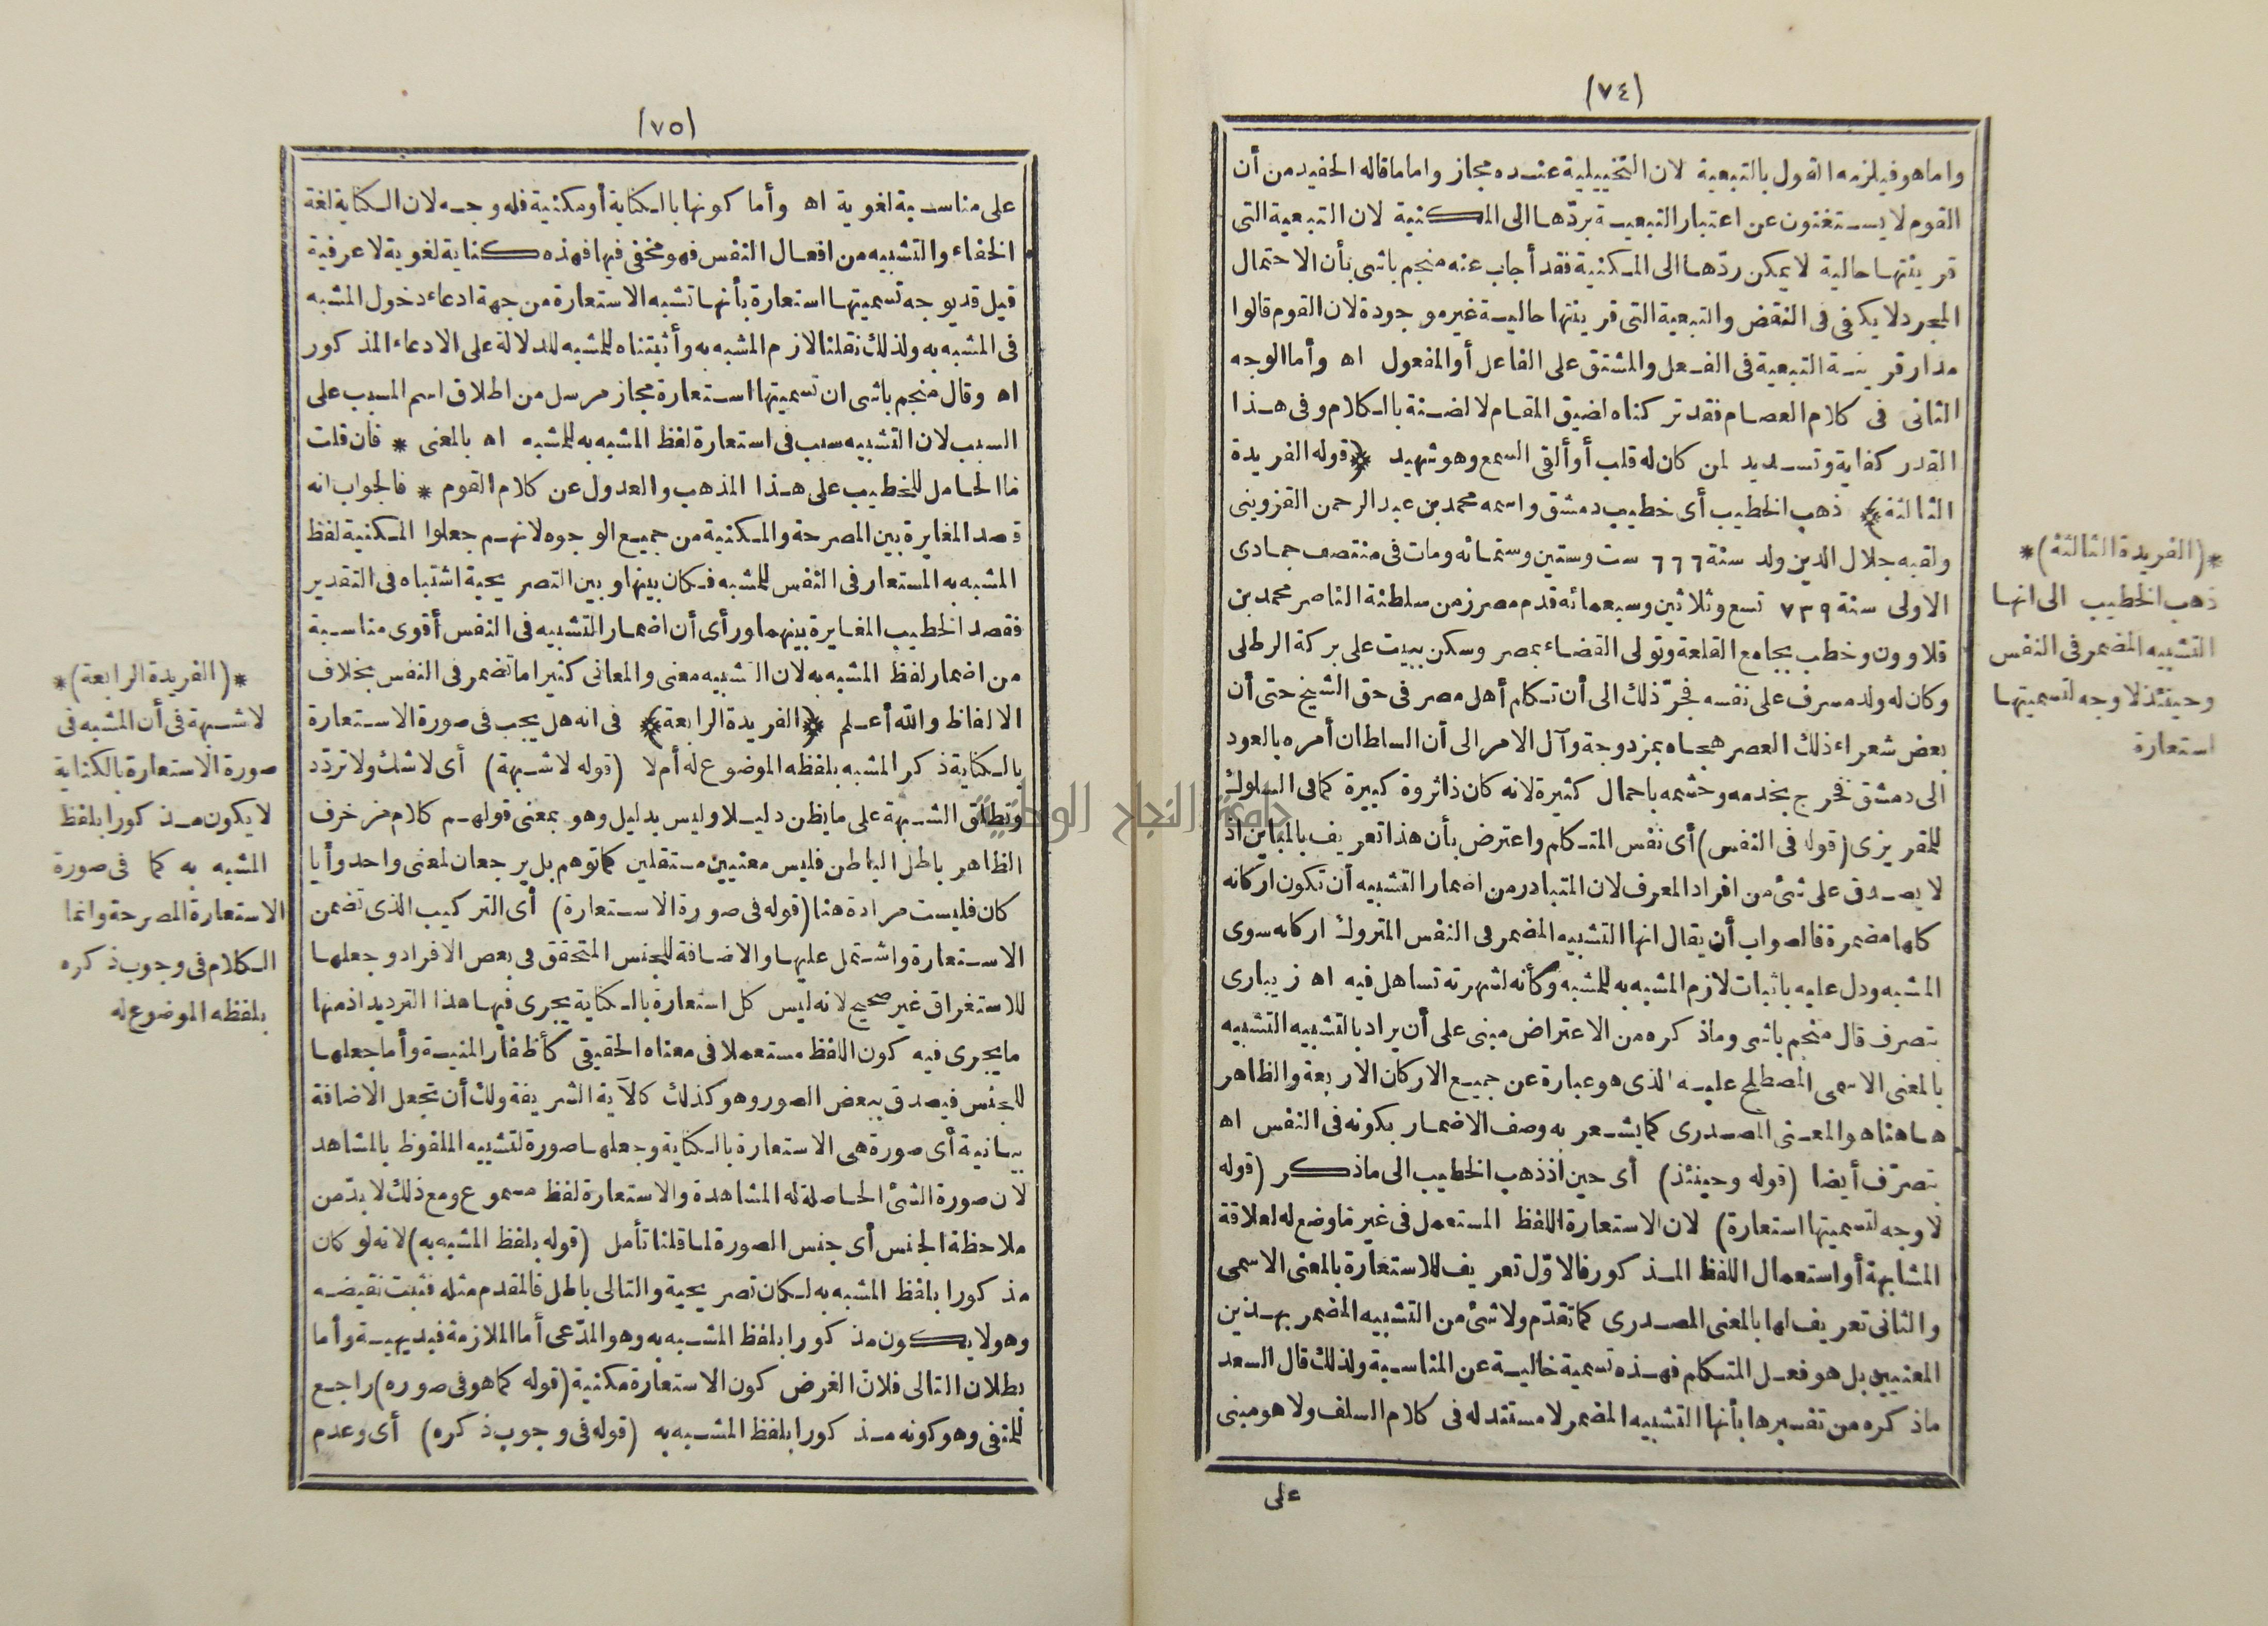 (٧٤)
واما هو فيلزمه القول بالتبعية لان التخييلية عنده مجاز واما ما قاله الحفيد من أن
القوم لا يستغنون عن اعتبار التبعية بردّها الى المكنية لان التبعية التى
قرينتها حالية لا يمكن ردّها الى المكنية فقد أجاب عنه منجم باشى بأن الاحتمال
المجرد لا يكفى فى النقض والتبعية التى قرينتها حالية غير موجودة لان القوم قالوا
مدار قرينة التبعية فى الفعل والمشتق على الفاعل أو المفعول اه وأما الوجه
الثانى فى كلام العصام فقد تركناه لضيق المقام لا لضنة بالكلام وفى هذا
القدر كفاية وتسديد لمن كان له قلب أو ألقى السمع وهو شهيد ﴿قوله الفريدة
الثالثة﴾ ذهب الخطيب أى خطيب دمشق واسمه محمد بن عبد الرحمن القزوينى
ولقبه جلال الدين ولد سنة ٦٦٦ ست وستين وستمائه ومات فى منتصف جمادى
الاولى سنة ٧٣٩ تسع وثلاثين وسبعمائه قدم مصر زمن سلطنة الناصر محمد بن
قلاوون وخطب بجامع القلعة وتولى القضاء بمصر وسكن ببيت على بركة الرطلى
وكان له ولد مسرف على نفسه فجرّ ذلك الى أن تكلم أهل مصر فى حق الشيخ حتى أن
بعض شعراء ذلك العصر هجاه بمزدوجة وآل الامر الى أن السلطان أمره بالعود
الى دمشق فخرج بخدمه وحشمه باحمال كثيرة لانه كان ذا ثروة كبيرة كما فى السلوك
للمقريزى (قوله فى النفس) أى نفس المتكلم واعترض بأن هذا تعريف بالمباين اذ
لا يصدق على شئ من افراد المعرف لان المتبادر من اضمار التشبيه أن تكون اركانه
كلها مضمرة فالصواب أن يقال انها التشبيه المضمر فى النفس المتروك اركانه سوى
المشبه ودل عليه باثبات لازم المشبه به للمشبه وكأنه لشهرته تساهل فيه اه زيبارى
بتصرف قال منجم باشى وما ذكره من الاعتراض مبنى على أن يراد بالتشبيه التشبيه
بالمعنى الاسمى المصطلح عليه الذى هو عبارة عن جميع الاركان الاربعة والظاهر
هاهنا هو المعنى المصدرى كما يشعر به وصف الاضمار بكونه فى النفس اه
بتصرّف أيضا (قوله وحينئذ) أى حين اذ ذهب الخطيب الى ما ذكر (قوله
لا وجه لتسميتها استعارة) لان الاستعارة اللفظ المستعمل فى غير ما وضع له لعلاقة
المشابهة أو استعمال اللفظ المذكور فالاوّل تعريف للاستعارة بالمعنى الاسمى
والثانى تعريف لها بالمعنى المصدرى كما تقدّم ولا شئ من التشبيه المضمر بهذين
المعنيين بل هو فعل المتكلم فهذه تسمية خالية عن المناسبة ولذلك قال السعد
ما ذكره من تفسيرها بأنها التشبيه المضمر لا مستند له فى كلام السلف ولا هو مبنى
على
*(الفريدة الثالثة)*
ذهب الخطيب الى انها
التشبيه المضمر فى النفس
وحينئذ لا وجه لتسميتها
استعارة
(٧٥)
على مناسبة لغوية اه وأما كونها بالكناية أو مكنية فله وجه لان الكناية لغة
الخفاء والتشبيه من افعال النفس فهو مخفى فيها فهذه كناية لغوية لا عرفية
قيل قد يوجه تسميتها استعارة بأنها تشبه الاستعارة من جهة ادعاء دخول المشبه
فى المشبه به ولذلك نقلنا لازم المشبه به وأثبتناه للمشبه للدلالة على الادعاء المذكور
اه وقال منجم باشى ان تسميتها استعارة مجاز مرسل من اطلاق اسم المسبب على
السبب لان التشبيه سبب فى استعارة لفظ المشبه به للمشبه اه بالمعنى * فان قلت
ما الحامل للخطيب على هذا المذهب والعدول عن كلام القوم * فالجواب انه
قصد المغايرة بين المصرحة والمكنية من جميع الوجوه لانهم جعلوا المكنية لفظ
المشبه به المستعار فى النفس للمشبه فكان بينها وبين التصريحية اشتباه فى التقدير
فقصد الخطيب المغايرة بينهما ورأى أن اضمار التشبيه فى النفس أقوى مناسبة
من اضمار لفظ المشبه به لان التشبيه معنى والمعانى كثيرا ما تضمر فى النفس بخلاف
الالفاظ والله أعلم ﴿الفريدة الرابعة﴾ فى انه هل يجب فى صورة الاستعارة
بالكناية ذكر المشبه بلفظه الموضوع له أم لا (قوله لا شبهة) أى لا شك ولا تردّد
وتطلق الشبهة على ما يظن دليلا وليس بدليل وهو بمعنى قولهم كلام مزخرف
الظاهر باطل الباطن فليس معنيين مستقلين كما توهم بل يرجعان لمعنى واحد وأيا
كان فليست مرادة هنا (قوله فى صورة الاستعارة) أى التركيب الذى تضمن
الاستعارة واشتمل عليها والاضافة للجنس المتحقق فى بعض الافراد وجعلها
للاستغراق غير صحيح لانه ليس كل استعارة بالكناية يجرى فيها هذا الترديد اذ منها
ما يجرى فيه كون اللفظ مستعملا فى معناه الحقيقى كأظفار المنية وأما جعلها
للجنس فيصدق ببعض الصور وهو كذلك كالآية الشريفة ولك أن تجعل الاضافة
بيانية أى صورة هى الاستعارة بالكناية وجعلها صورة لتشبيه الملفوظ بالمشاهد
لان صورة الشئ الحاصلة له المشاهدة والاستعارة لفظ مسموع ومع ذلك لا بدّ من
ملاحظة الجنس أى جنس الصورة لما قلنا تأمل (قوله بلفظ المشبه به) لانه لو كان
مذكورا بلفظ المشبه به لكان تصريحية والتالى باطل فالمقدم مثله فثبت نقيضه
وهو لا يكون مذكورا بلفظ المشبه به وهو المدّعى أما الملازمة فبديهية وأما
بطلان التالى فلان الغرض كون الاستعارة مكنية (قوله كما هو فى صوره) راجع
للمنفى وهو كونه مذكورا بلفظ المشبه به (قوله فى وجوب ذكره) أى وعدم
*(الفريدة الرابعة)*
لا شبهة فى أن المشبه فى
صورة الاستعارة بالكناية
لا يكون مذكورا بلفظ
المشبه به كما فى صورة
الاستعارة المصرحة وانما
الكلام فى وجوب ذكره
بلفظه الموضوع له
جامعة النجاح الوطنية